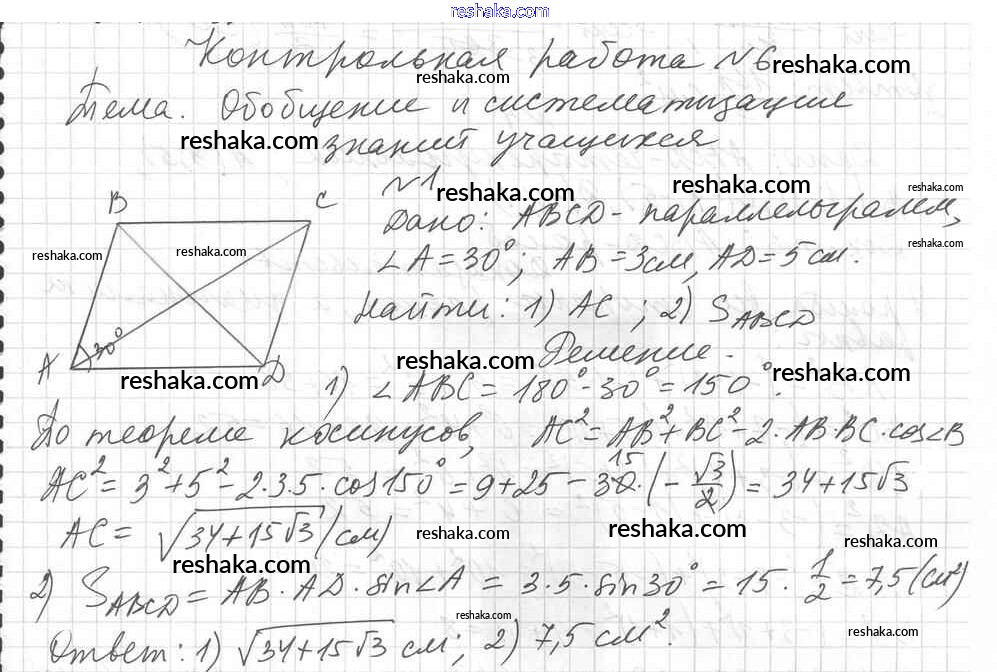 reshaka.com
Контрольная работа №6 reshaka.com
reshaka.com
Тема. Обобщение и систематизация
reshaka.com знаний учащихся
№1 reshaka.com reshaka.com reshaka.com
Дано: ABCD - параллелограмм,
∠A = 30°; AB = 3см, AD = 5 см. reshaka.com
Найти: 1) AC ; 2) S_ABCD
B C
reshaka.com reshaka.com
A 30° D
reshaka.com reshaka.com Решение. reshaka.com
1) ∠ABC = 180° - 30° = 150°.
По теореме косинусов, AC² = AB² + BC² - 2·AB·BC·cos∠B
AC² = 3² + 5² - 2·3·5·cos150° = 9 + 25 - 30 15·(-√3/2) = 34 + 15√3
AC = √(34 + 15√3) (см) reshaka.com reshaka.com reshaka.com
reshaka.com
2) S_ABCD = AB·AD·sin∠A = 3·5·sin30° = 15·1/2 = 7,5 (см²)
reshaka.com reshaka.com
Ответ: 1) √(34 + 15√3) см; 2) 7,5 см².